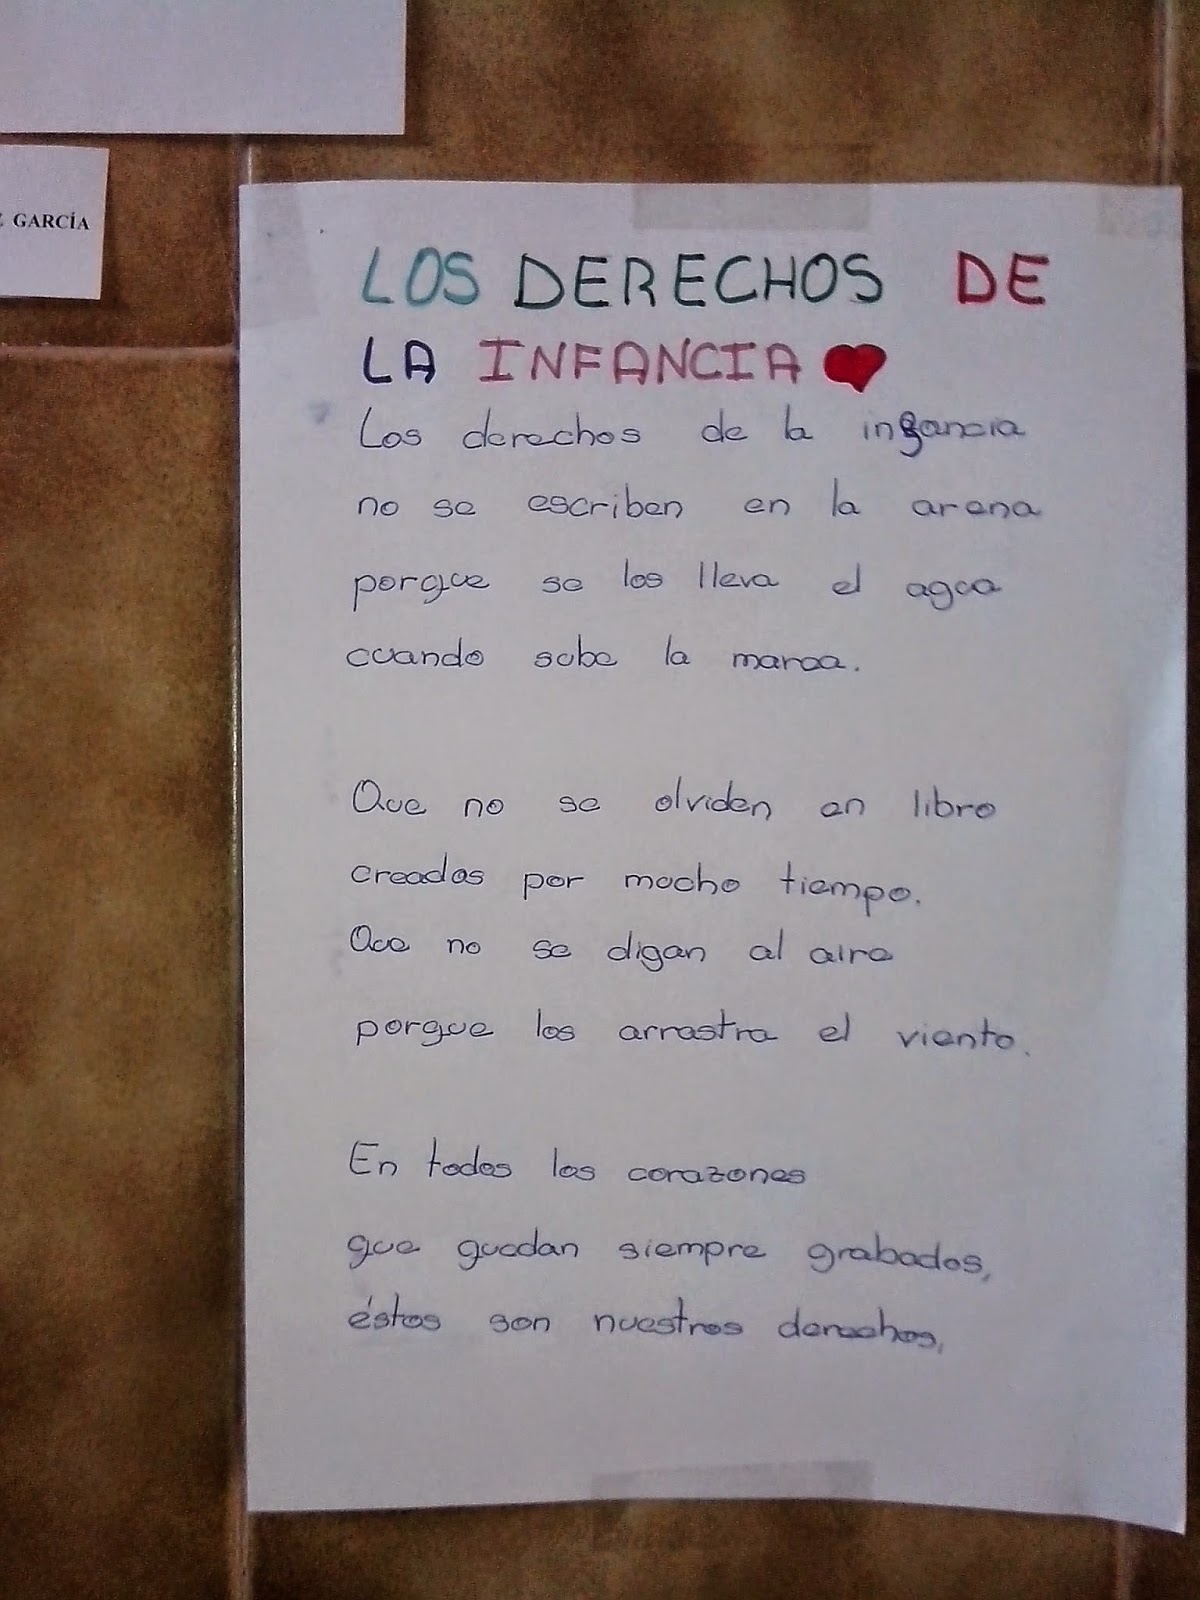 GARCÍA
LOS DERECHOS DE
LA INFANCIA
Los derechos de la infancia
no se escriben en la arena
porque se los lleva el agua
cuando sube la marea.
Que no se olviden en libro
creados por mucho tiempo.
Que no se digan al aire
porque los arrastra el viento.
En todos los corazones
que quedan siempre grabados,
éstos son nuestros derechos,